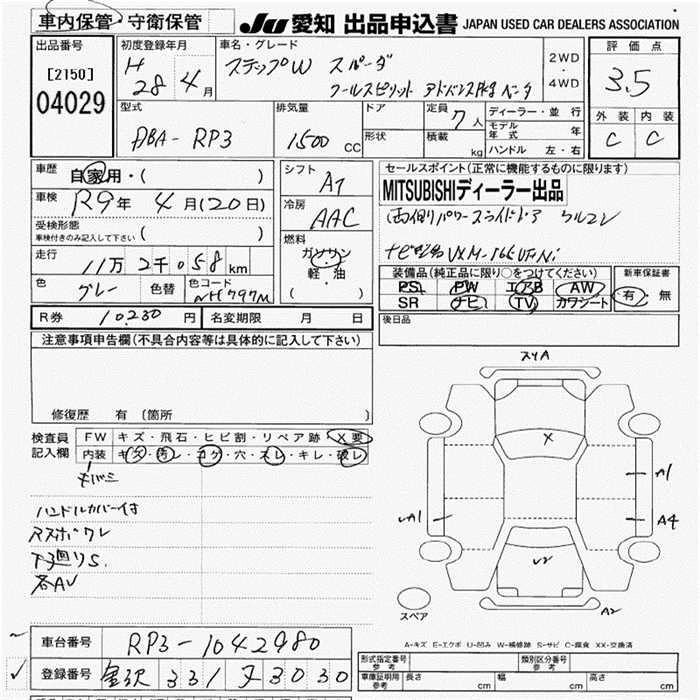 車内保管・守衛保管
JU 愛知 出品申込書 JAPAN USED CAR DEALERS ASSOCIATION
出品番号
[2150]
04029
初度登録年月
H 28年 4月
車名・グレード
ステップW スパーダ
クールスピリット アドバンスPKGベータ
2WD・4WD
評価点
3.5
外装 内装
C C
型式
DBA-RP3
排気量
1500 CC
ドア
形状
定員 7人
積載 kg
ディーラー・並行
モデル年式 年
ハンドル 左・右
車歴
自家用・( )
車検
R9年 4月(20日)
受検形態
車検付きのみ記入して下さい ( )
走行
11万2千058km
色
グレー
色替
色コード
NH797M
シフト
AT
冷房
AAC
燃料
ガソリン
軽・油
( )
セールスポイント(正常に機能するものに限ります)
MITSUBISHIディーラー出品
両側パワースライドドア
ナビ型番VXM-165VFNi
装備品(純正品に限り○をつけてください)
PS PW エアB AW
SR ナビ TV カワシート
新車保証書
有・無
後日品
R券 10,280円
名変期限 月 日
注意事項申告欄(不具合内容等は具体的に記入して下さい)
修復歴 有〔箇所 〕
検査員記入欄
FW キズ・飛石・ヒビ割・リペア跡・X要
内装 キズ・汚レ・コゲ・穴・スレ・キレ・破レ
ハンドルカバー付
下廻りS.
各AU
スリA
X
A1
A1
A4
U2
A2
スペア
A-キズ E-エクボ U-凹み W-補修跡 S-サビ C-腐食 XX-交換済
車台番号
RP3-1042980
登録番号
金沢 331 ヌ 3030
形式指定番号 参考
類別区分番号 参考
車庫証明用 参考
長さ cm 幅 cm 高さ cm